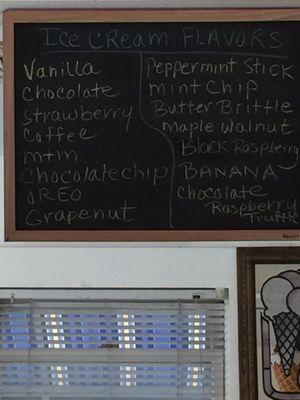 Ice Cream FLAVORS
Vanilla
Chocolate
Strawberry
Coffee
m+m
Chocolate chip
OREO
Grapenut
Peppermint Stick
mint Chip
Butter Brittle
Maple Walnut
Black Raspberry
BANANA
Chocolate
Raspberry
Truffle